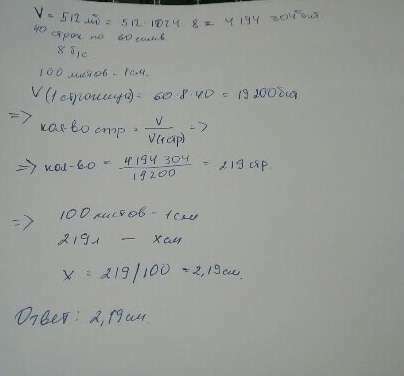 V = 512 мб = 512·1024·8 = 4 194 304 бит
40 строк по 60 симв
8 б/с
100 листов - 1см.
V(1 страница) = 60·8·40 = 19 200 бит
=> кол-во стр = V / V(1 стр) =>
=> кол-во = 4194 304 / 19200 = 219 стр.
=> 100 листов - 1см
219л — x см
x = 219/100 = 2,19 см.
Ответ: 2,19 см.